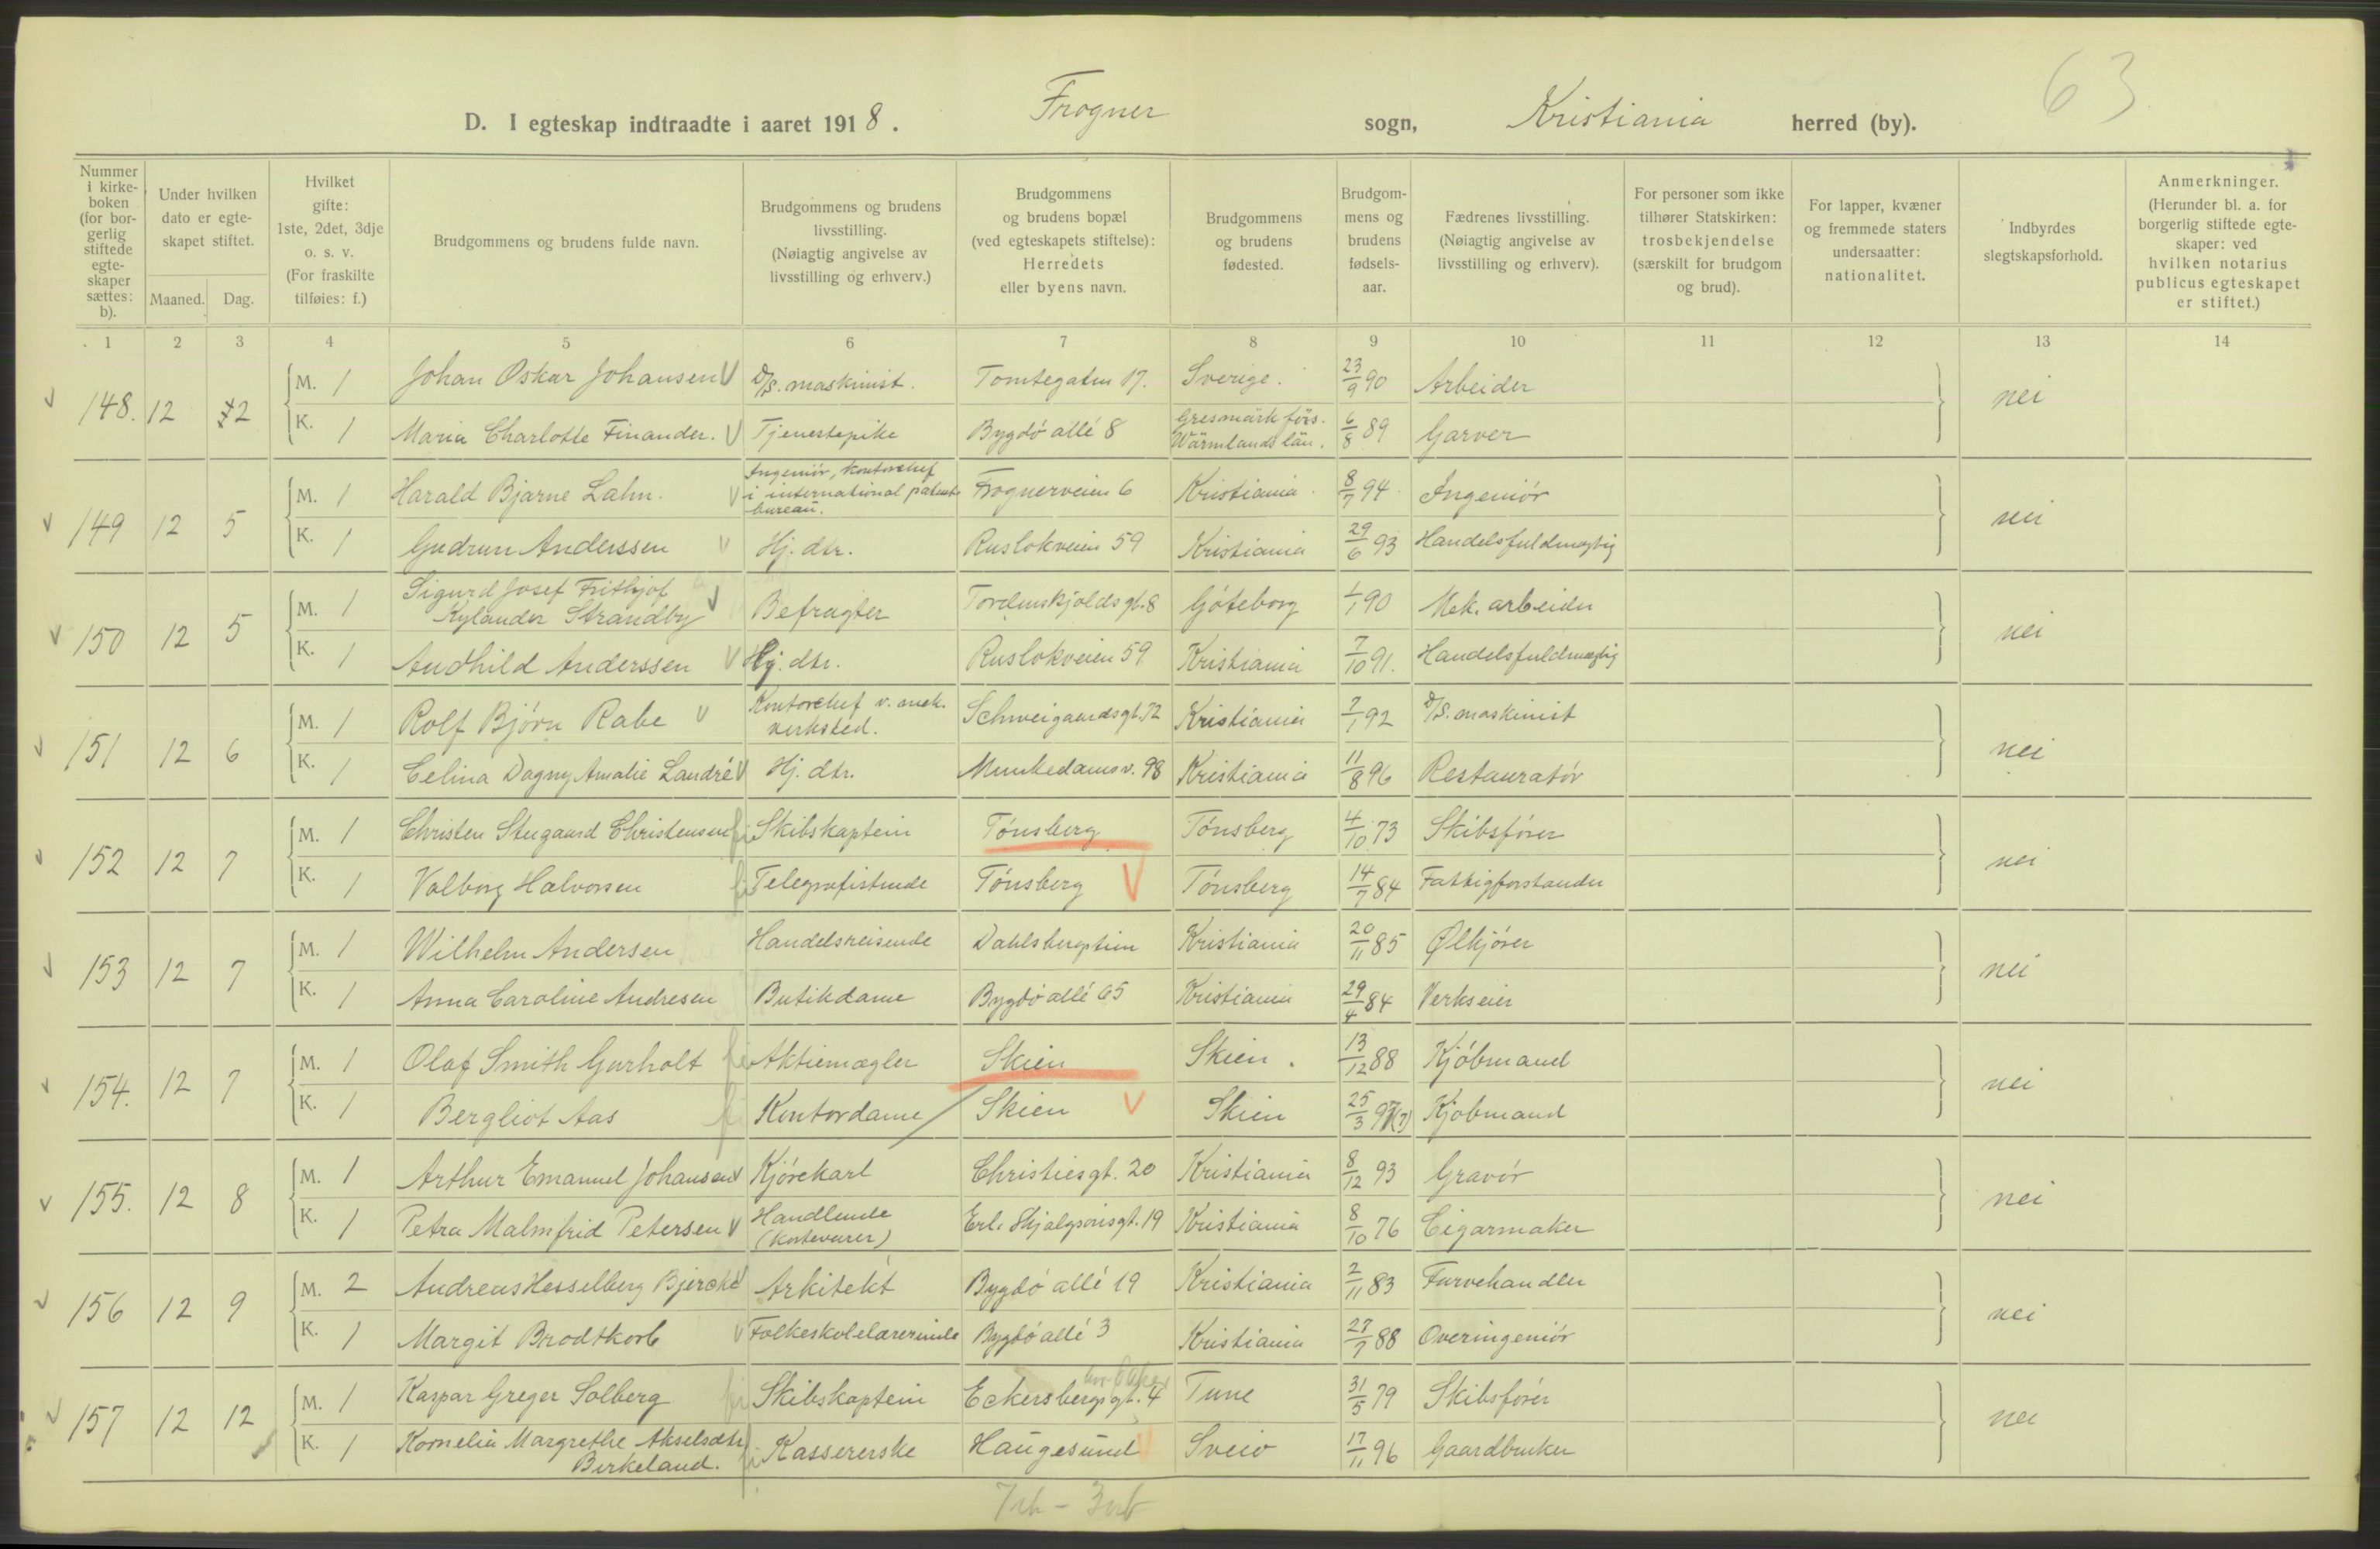 63
D. I egteskap indtraadte i aaret 1918. Frogner sogn, Kristiania herred (by).
Nummer i kirkeboken (for borgerlig stiftede egteskaper sættes: b).
Under hvilken dato er egteskapet stiftet.
Maaned. Dag.
Hvilket gifte: 1ste, 2det, 3dje o. s. v. (For fraskilte tilføies: f.)
Brudgommens og brudens fulde navn.
Brudgommens og brudens livsstilling. (Nøiagtig angivelse av livsstilling og erhverv.)
Brudgommens og brudens bopæl (ved egteskapets stiftelse): Herredets eller byens navn.
Brudgommens og brudens fødested.
Brudgommens og brudens fødselsaar.
Fædrenes livsstilling. (Nøiagtig angivelse av livsstilling og erhverv).
For personer som ikke tilhører Statskirken: trosbekjendelse (særskilt for brudgom og brud).
For lapper, kvæner og fremmede staters undersaatter: nationalitet.
Indbyrdes slegtskapsforhold.
Anmerkninger. (Herunder bl. a. for borgerlig stiftede egteskaper: ved hvilken notarius publicus egteskapet er stiftet.)
1 2 3 4 5 6 7 8 9 10 11 12 13 14
148. 12 2 M. 1 Johan Oskar Johansen D/S. maskinist. Tomtegaten 17. Sverige. 23/9 90 Arbeider nei
K. 1 Maria Charlotte Finander. Tjenestepike Bygdö allé 8 Gresmark förs. Wärmlands län. 6/8 89 Garver
149 12 5 M. 1 Harald Bjarne Lahn. Ingeniör, kontorchef i international patentbureau. Frognerveien 6 Kristiania 8/7 94 Ingeniör nei
K. 1 Gudrun Anderssen Hj. dtr. Ruslokveien 59 Kristiania 29/6 93 Handelsfuldmægtig
150 12 5 M. 1 Sigurd Josef Frithjof Kylander Strandby Befragter Tordenskjolds gt. 8 Göteborg 1/1 90 Mek. arbeider nei
K. 1 Audhild Anderssen Hj. dtr. Ruslokveien 59 Kristiania 7/10 91. Handelsfuldmægtig
151 12 6 M. 1 Rolf Björn Rabe Kontorchef v. mek. verksted. Schweigaardsgt. 72 Kristiania 7/1 92 D/S. maskinist nei
K. 1 Celina Dagny Amalie Landré Hj. dtr. Munkedamsv. 98 Kristiania 11/8 96 Restauratör
152 12 7 M. 1 Christen Stugaard Christensen Skibskaptein Tönsberg Tönsberg 4/10 73 Skibsförer nei
K. 1 Valborg Halvorsen Telegrafistinde Tönsberg Tönsberg 14/7 84 Fattigforstander
153 12 7 M. 1 Wilhelm Andersen Handelsreisende Dahlsbergstien Kristiania 20/11 85 Ølkjörer nei
K. 1 Anna Caroline Andresen Butikdame Bygdö allé 65 Kristiania 29/4 84 Verkseier
154. 12 7 M. 1 Olaf Smith Gurholt Aktiemægler Skien Skien. 13/12 88 Kjöbmand nei
K. 1 Bergliot Aas Kontordame Skien Skien 25/3 97(?) Kjöbmand
155. 12 8 M. 1 Arthur Emanuel Johansen Kjörekarl Christiesgt. 20 Kristiania 8/12 93 Gravör nei
K. 1 Petra Malmfrid Petersen Handlende (kortevarer) Erl. Skjalgsönsgt. 19 Kristiania 8/10 76 Cigarmaker
156 12 9 M. 2 Andreas Hesselberg Bjercke Arkitekt Bygdö allé 19 Kristiania 2/11 83 Farvehandler nei
K. 1 Margit Brodtkorb Folkeskolelærerinde Bygdö allé 3 Kristiania 27/7 88 Overingeniör
157 12 12 M. 1 Kaspar Greger Solberg Skibskaptein Eckersbergsgt. 4 Tune 31/5 79 Skibsförer nei
K. 1 Kornelia Margrethe Akselsdtr Birkeland. Kassererske Haugesund Sveio 17/11 96 Gaardbruker